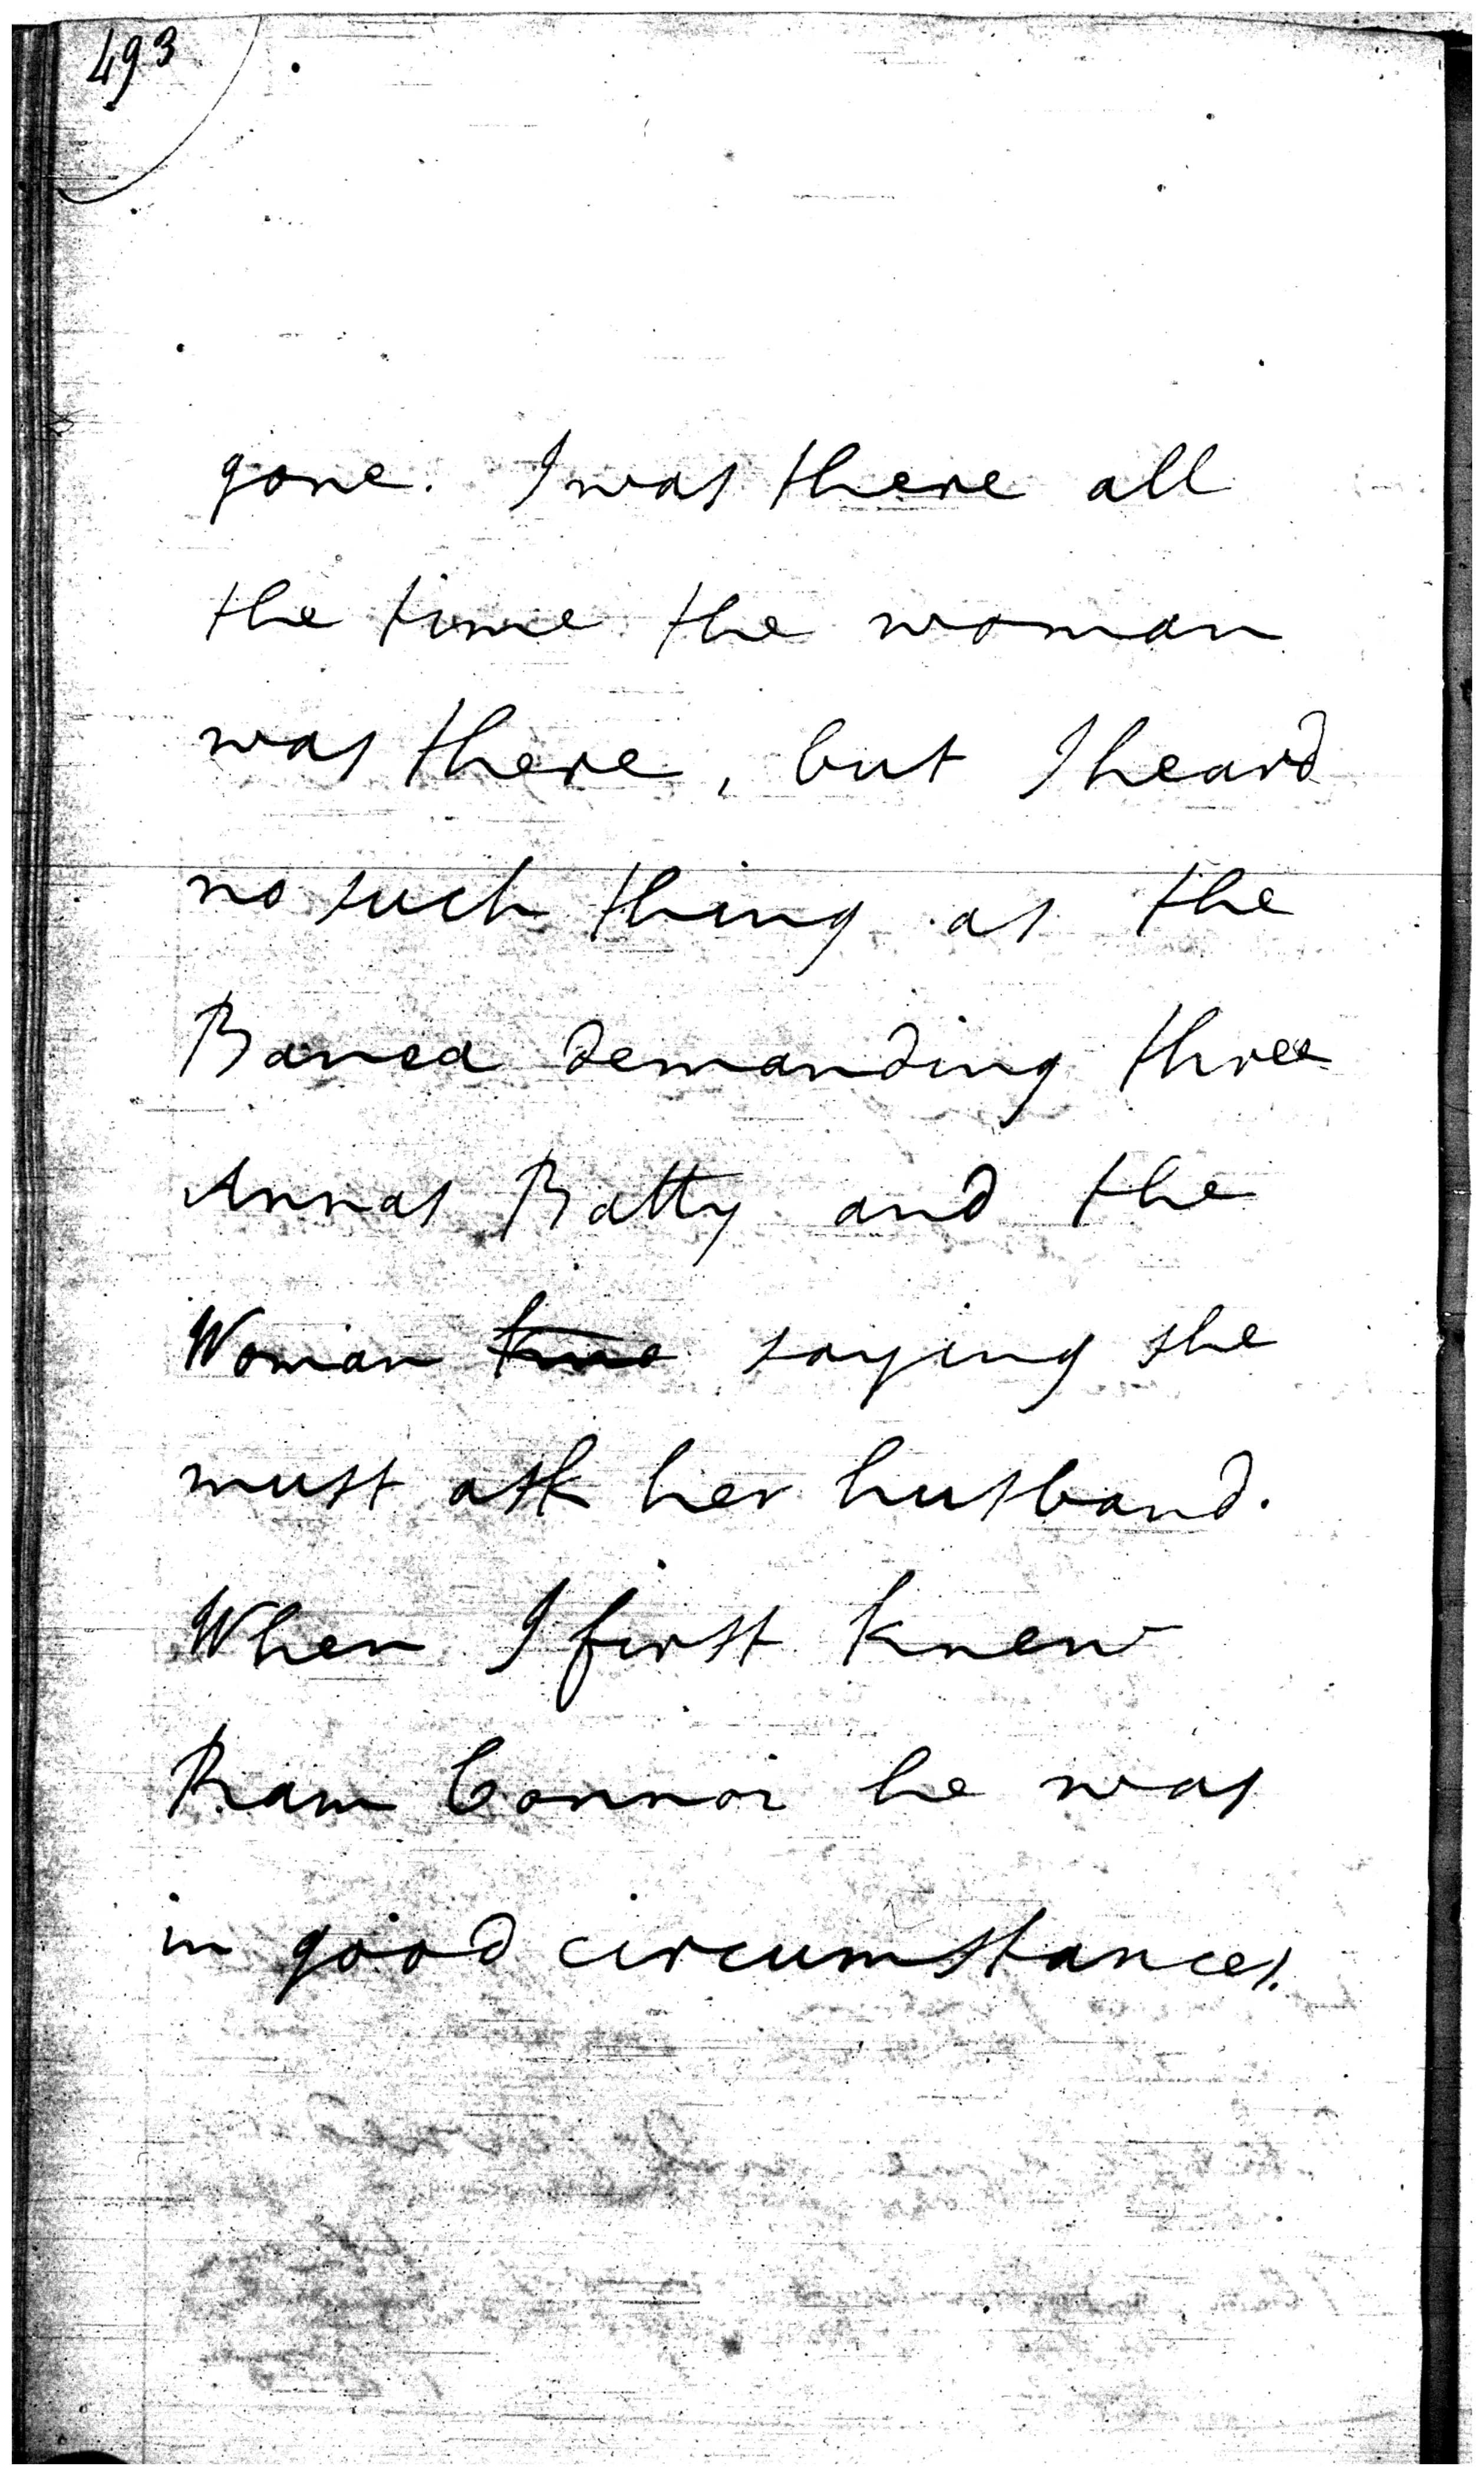 493
gone. I was there all
the time the woman
was there, but I heard
no such thing as the
Banea demanding three
Annas Batty and the
Woman saying she
must ask her husband.
When I first knew
Ram Connoi he was
in good circumstances.